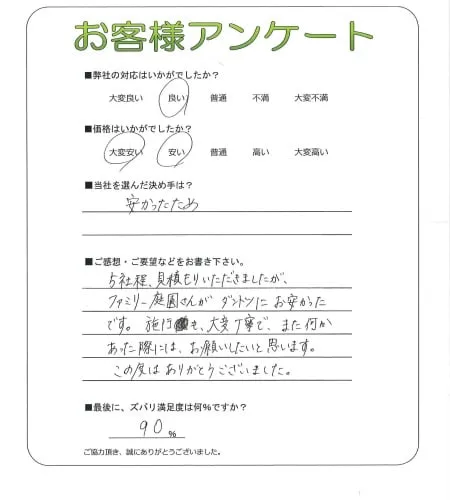 お客様アンケート
■弊社の対応はいかがでしたか?
大変良い 良い 普通 不満 大変不満
■価格はいかがでしたか?
大変安い 安い 普通 高い 大変高い
■当社を選んだ決め手は?
安かったため
■ご感想・ご要望などをお書き下さい。
5社程、見積もりいただきましたが、
ファミリー庭園さんが ダントツにお安かった
です。施行も、大変丁寧で、また何か
あった際には、お願いしたいと思います。
この度はありがとうございました。
■最後に、ズバリ満足度は何%ですか?
90%
ご協力頂き、誠にありがとうございました。